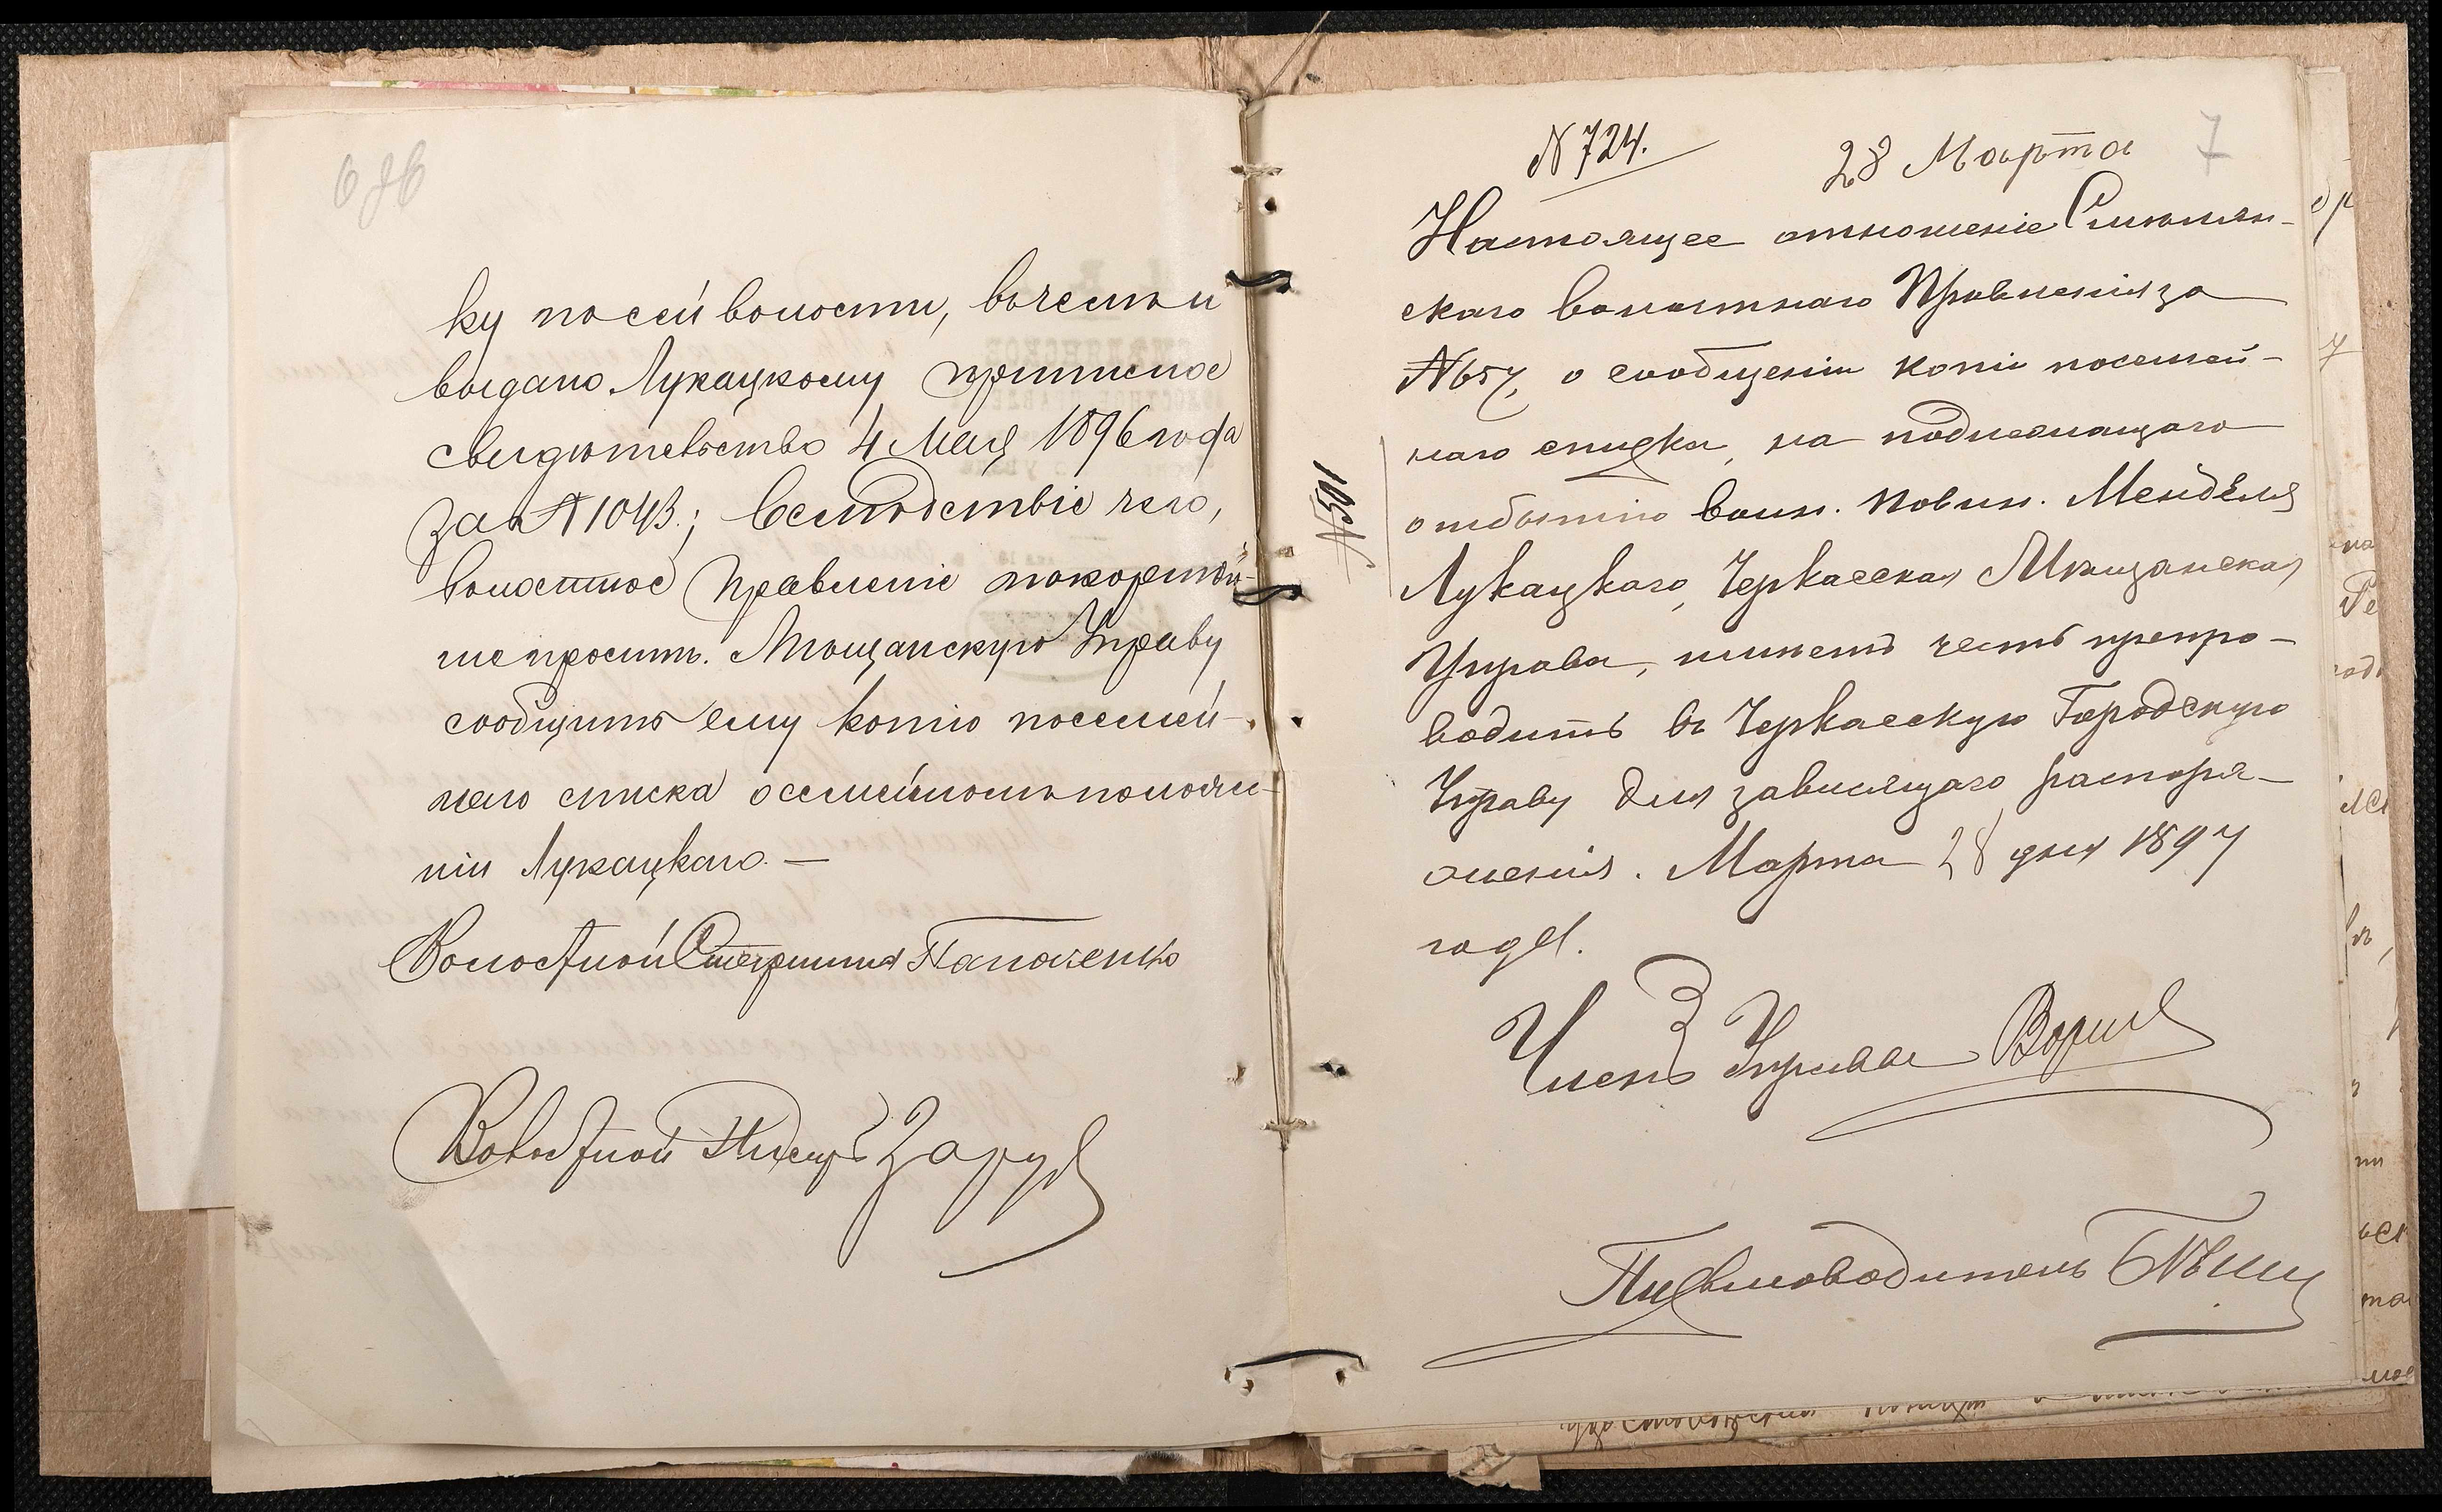 6 об
ку по сей волости, въ чемъ и
выдано Лукацкому приписное
свидѣтельство 4 Мая 1896 года
за № 1043.; вслѣдствіе чего,
волостное Правленіе покорнѣй-
ше проситъ. Мѣщанскую Управу
сообщить ему копію посемей-
наго списка о семейномъ положе-
ніи Лукацкаго. —
Волостной Старшина
Волостной Писарь
№ 724.
28 Марта
7
Настоящее отношеніе Смѣлян-
скаго волостнаго Правленія за
№ 657, о сообщеніи копіи посемей-
наго списка, на подлежащаго
отбытію воин. повин. Менделя
Лукацкаго, Черкасская Мѣщанская
Управа, имѣетъ честь препро-
водить въ Черкасскую Городскую
Управу для зависящаго распоря-
женія. Марта 28 дня 1897
года.
№ 501
Членъ Управы
Письмоводитель